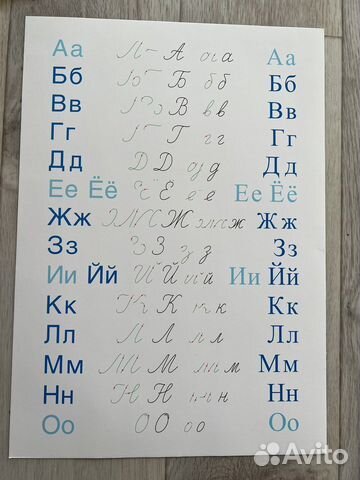 Аа Л A ога Аа
Бб Б бб Бб
Вв В вв Вв
Гг Г гг Гг
Дд Д Д д д Дд
Ее Ёё Ё ё е Ее Ёё
Жж Ж ж Жж
Зз З З з з Зз
Ии Йй И Й и й Ии Йй
Кк К К к к Кк
Лл Л Л л л Лл
Мм М М м м Мм
Нн Н Н н н Нн
Оо О О о о Оо
Avito